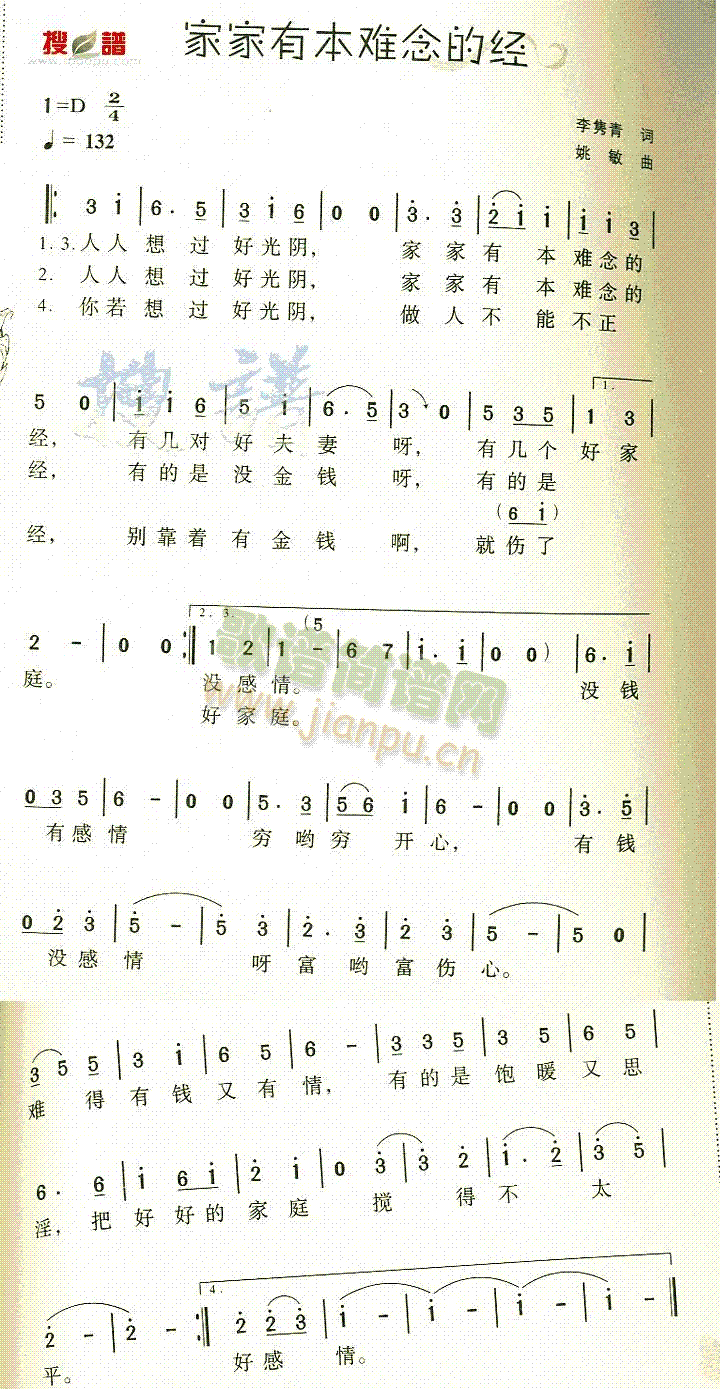 搜谱
www.sooopu.com
家家有本难念的经
1=D 2/4
♩= 132
李隽青 词
姚敏 曲
𝄆 3 i | 6 . 5 | 3 i 6 | 0 0 | 3 . 3 | 2 i i | i i 3 |
1.3. 人人 想 过 好光阴, 家 家 有 本 难念的
2. 人人 想 过 好光阴, 家 家 有 本 难念的
4. 你若 想 过 好光阴, 做 人 不 能 不正
搜 谱
1.
5 0 | i i 6 | 5 i | 6 . 5 | 3 0 | 5 3 5 | 1 3 |
经, 有几对 好 夫 妻 呀, 有 几个 好 家
经, 有的是 没金钱 呀, 有的是
(6 i)
经, 别靠着 有金钱 啊, 就伤了
2. 3.
(5
2 - | 0 0 :| 1 2 | 1 - | 6 7 | i . i | 0 0) | 6 . i |
庭。 没感情。 没钱
好家庭。
歌谱简谱网
www.jianpu.cn
0 3 5 | 6 - | 0 0 | 5 . 3 | 5 6 i | 6 - | 0 0 | 3 . 5 |
有感情 穷哟穷 开心, 有钱
0 2 3 | 5 - | 5 3 | 2 . 3 | 2 3 | 5 - | 5 0 |
没感情 呀富 哟富伤心。
3 5 5 | 3 i | 6 5 | 6 - | 3 3 5 | 5 5 | 6 5 |
难 得有钱又有情, 有的是饱暖又思
6 . 6 | i 6 i | 2 i | 0 3 | 3 2 | i . 2 | 3 5 |
淫,把好好的家庭 搅 得不 太
4.
2 - | 2 - :| 2 2 3 | i - | i - | i - | i - |
平。 好感 情。